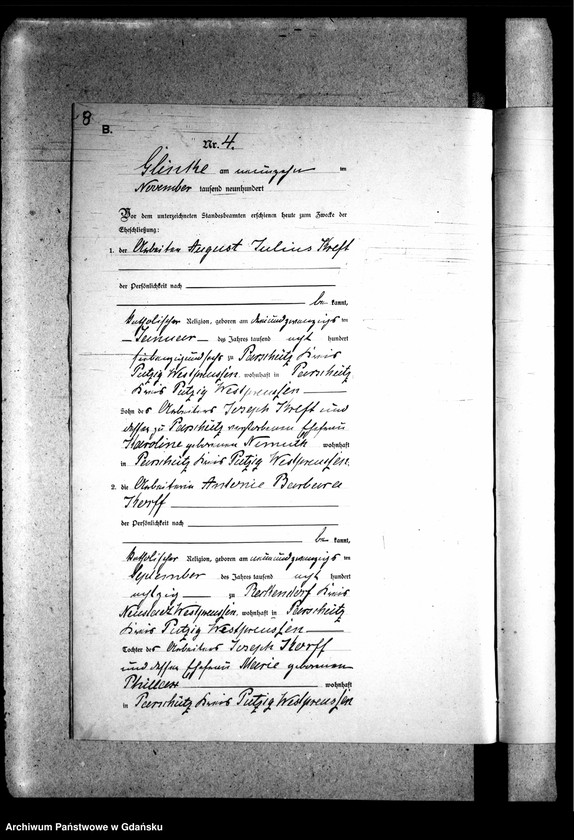 8
B.
Nr. 4.
Glinke am neunzehn ten
November tausend neunhundert
Vor dem unterzeichneten Standesbeamten erschienen heute zum Zwecke der
Eheschließung:
1. der Arbeiter August Julius Kreft
der Persönlichkeit nach
be kannt,
katholischer Religion, geboren am dreiundzwanzigsten
Januar des Jahres tausend acht hundert
zu Parschütz Kreis
Putzig Westpreussen, wohnhaft in Parschütz
Kreis Putzig Westpreussen
Sohn des Arbeiters Joseph Kreft und
dessen zu Parschütz verstorbenen Ehefrau
Karoline geborenen Nemuth wohnhaft
in Parschütz Kreis Putzig Westpreussen
2. die Arbeiterin Antonie Barbara
Korff
der Persönlichkeit nach
be kannt,
katholischer Religion, geboren am neunundzwanzigsten
September des Jahres tausend acht hundert
achtzig zu Rekendorf Kreis
Neustadt Westpreussen, wohnhaft in Parschütz
Kreis Putzig Westpreussen
Tochter des Arbeiters Joseph Korff
und dessen Ehefrau Marie geborenen
wohnhaft
in Parschütz Kreis Putzig Westpreussen
Archiwum Państwowe w Gdańsku